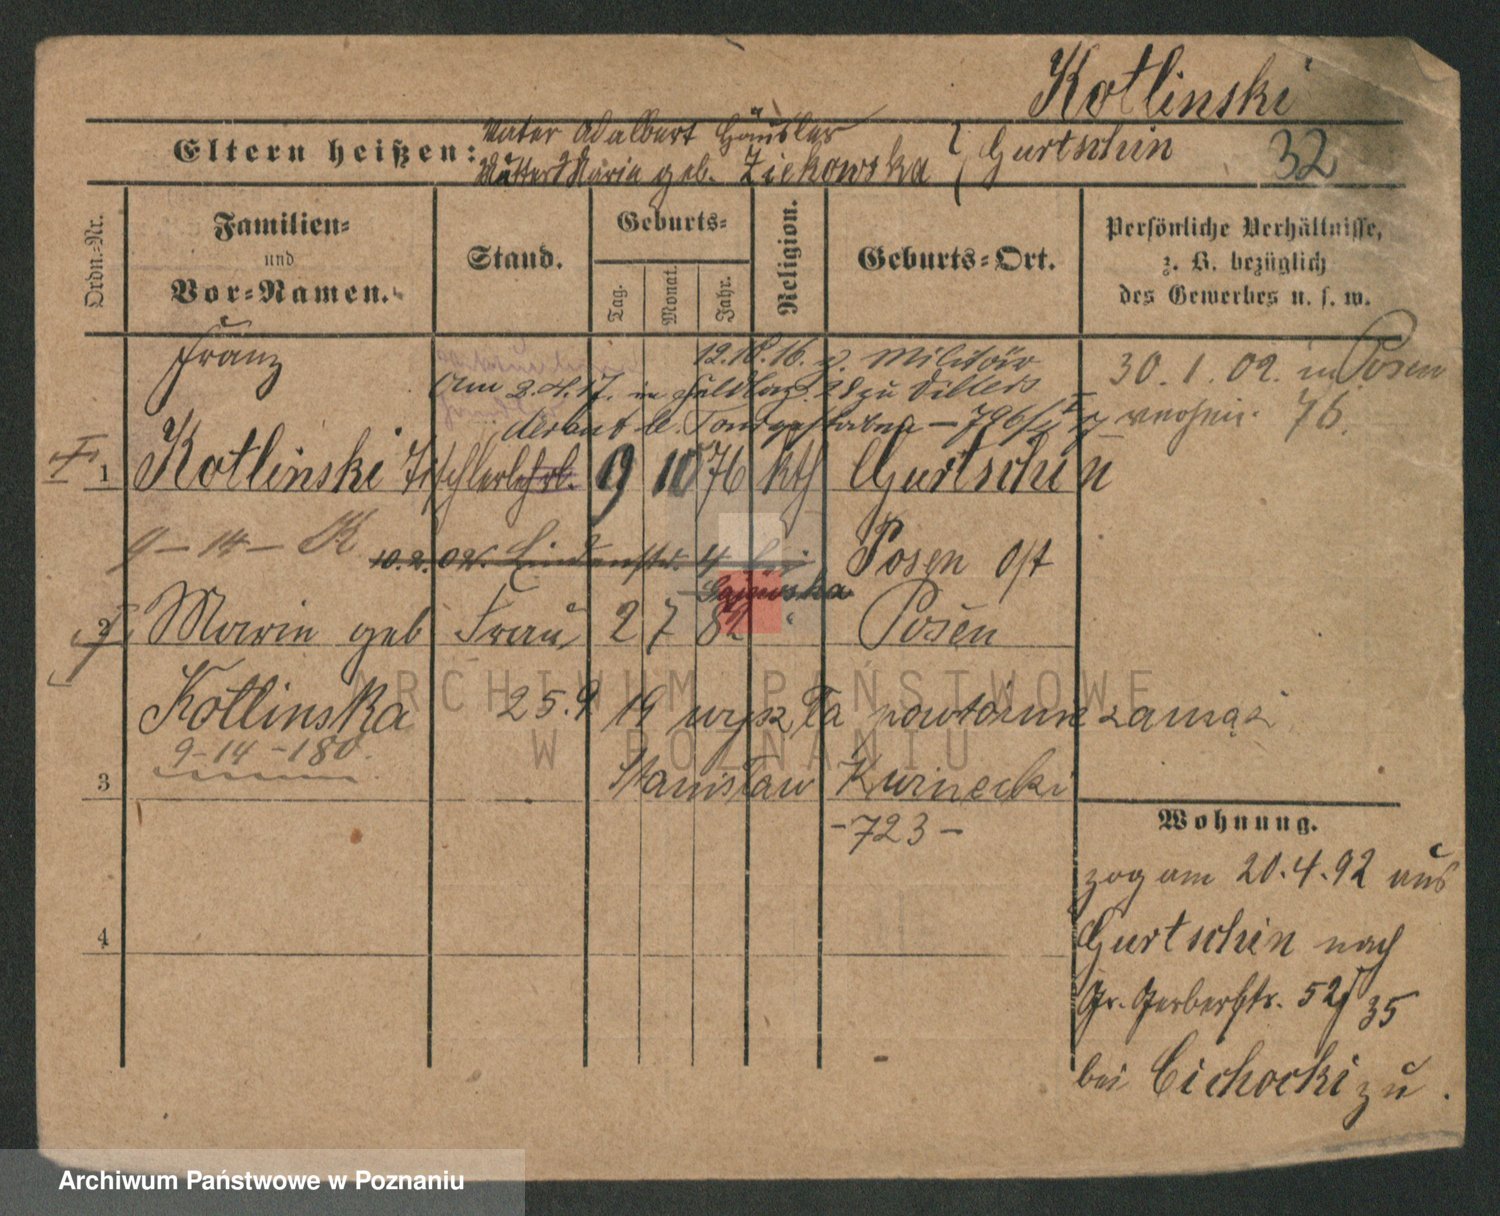 Kotlinski
32
Eltern heißen:
Vater Adalbert Häusler
Mutter Maria geb. Ziekowska } Gurtschin
Ordn.-Nr.
Familien-
und
Vor-Namen.
Stand.
Geburts-
Tag.
Monat.
Jahr.
Religion.
Geburts-Ort.
Persönliche Verhältnisse,
z. B. bezüglich
des Gewerbes u. s. w.
Franz
12.10.16. z. Militär
Am 2.4.17. in 28 zu Villers
30.1.02. in Posen
76.
1 Kotlinski Tischlerlehrl. 9 10 76 kth Gurtschin
9-14-
10.2.02. Lindenstr. 4 bei
Posen Ost
Gajewska
2 Maria geb Frau 2 7 82 Posen
Kotlinska 25.9 19 wyszła powtórnie zamąż
9-14-180.
3
Stanisław
-723-
4
Wohnung.
zog am 20.4.92 aus
Gurtschin nach
Gr. Gerberstr. 52 35
bei Cichocki zu.
ARCHIWUM PAŃSTWOWE
W POZNANIU
Archiwum Państwowe w Poznaniu